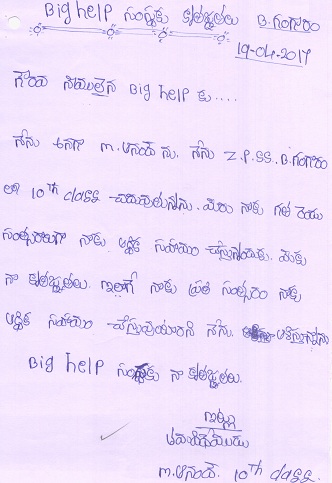 Big help సంస్థకు కృతజ్ఞతలు B.గంగారం
19-04-2017
గౌరవ నీయులైన Big help కు....
నేను అనగా M. ను. నేను Z.P.SS. B.గంగారం
లో 10th class చదువుతున్నాను. మీరు నాకు గత రెండు
సంవత్సరాలుగా నాకు ఆర్థిక సహాయం చేస్తున్నారు. మీకు
నా కృతజ్ఞతలు. ఇలాగే నాకు ప్రతి సంవత్సరం నాకు
ఆర్థిక సహాయం చేస్తువుంటారని నేను. ఆశిస్తున్నాను
Big help సంస్థకు నా కృతజ్ఞతలు.
ఇట్లు
M. 10th class.